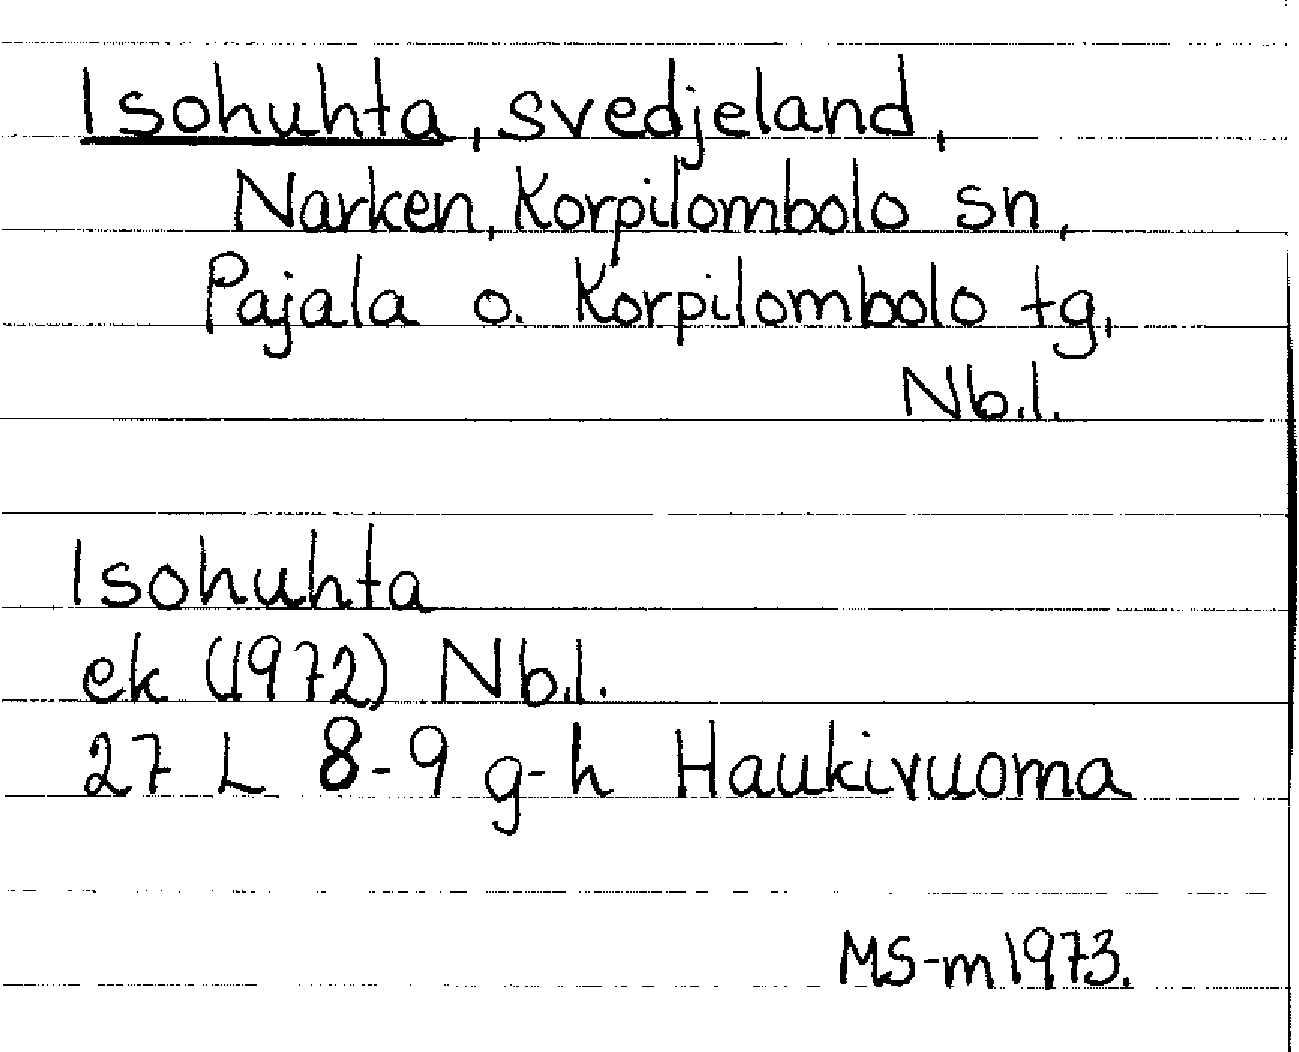 Isohuhta, svedjeland,
Narken, Korpilombolo sn,
Pajala o. Korpilombolo tg,
Nb.l.
Isohuhta
ek (1972) Nb.l.
27 L 8-9 g-h Haukivuoma
MS-m 1973.